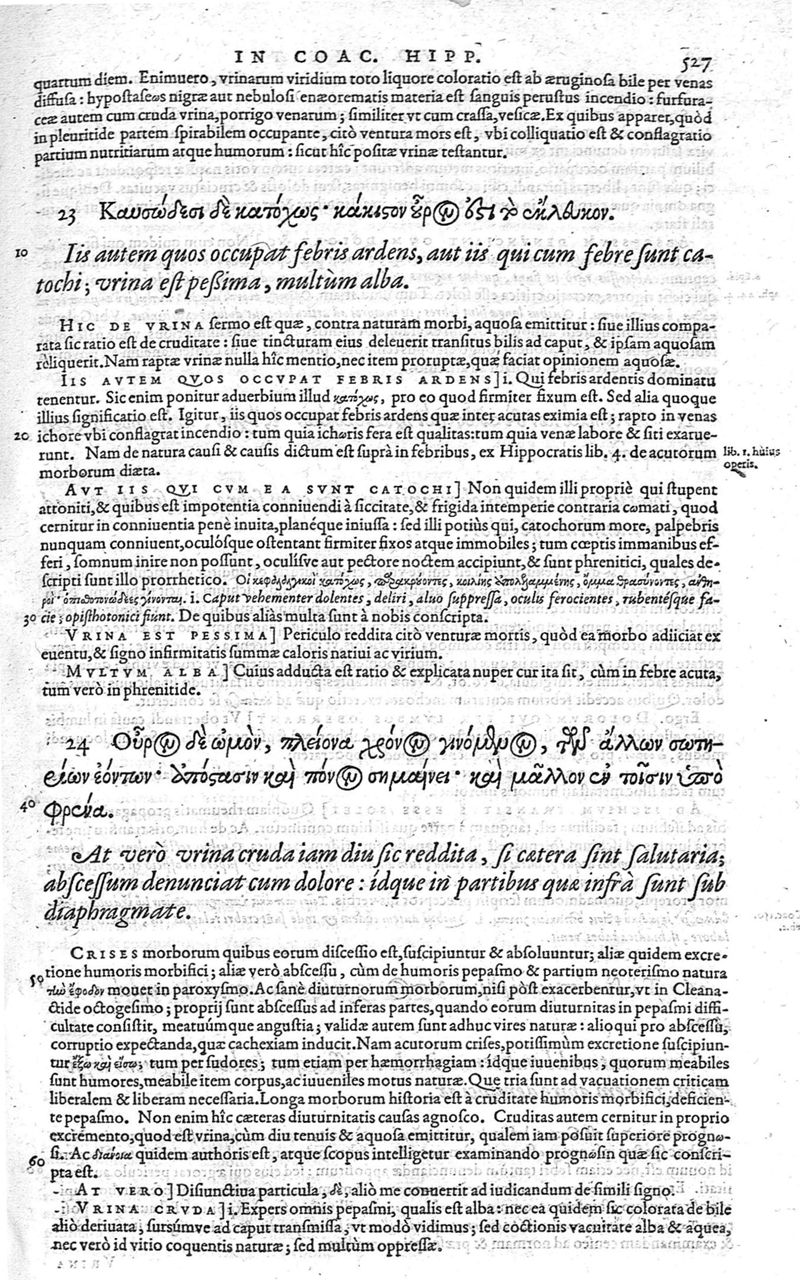 IN COAC. HIPP. 527
quartum diem. Enimuero, vrinarum viridium toto liquore coloratio est ab æruginosa bile per venas
diffusa: hypostaseωs nigræ aut nebulosi enæorematis materia est sanguis perustus incendio: furfura-
ceæ autem cum cruda vrina, porrigo venarum; similiter vt cum crassa, vesicæ. Ex quibus apparet, quòd
in pleuritide partem spirabilem occupante, citò ventura mors est, vbi colliquatio est & conflagratio
partium nutritiarum atque humorum: sicut hîc positæ vrinæ testantur.
23 Καυσώδεσι δὲ κατόχως· κάκιστον οὖρον ἐστι τὸ ἔκλευκον.
10 Iis autem quos occupat febris ardens, aut iis qui cum febre sunt ca-
tochi; vrina est pessima, multùm alba.
HIC DE VRINA sermo est quæ, contra naturam morbi, aquosa emittitur: siue illius compa-
rata sic ratio est de cruditate: siue tincturam eius deleuerit transitus bilis ad caput, & ipsam aquosam
reliquerit. Nam raptæ vrinæ nulla hîc mentio, nec item proruptæ, quæ faciat opinionem aquosæ.
IIS AVTEM QVOS OCCVPAT FEBRIS ARDENS] i. Qui febris ardentis dominatu
tenentur. Sic enim ponitur aduerbium illud κατόχως, pro eo quod firmiter fixum est. Sed alia quoque
illius significatio est. Igitur, iis quos occupat febris ardens quæ inter acutas eximia est; rapto in venas
20 ichore vbi conflagrat incendio: tum quia ichωris fera est qualitas: tum quia venæ labore & siti exarue-
runt. Nam de natura causi & causis dictum est suprà in febribus, ex Hippocratis lib. 4. de acutorum
lib. 1. huius
operis.
morborum diæta.
AVT IIS QVI CVM EA SVNT CATOCHI] Non quidem illi propriè qui stupent
attoniti, & quibus est impotentia conniuendi à siccitate, & frigida intemperie contraria cωmati, quod
cernitur in conniuentia penè inuita, planéque iniussa: sed illi potiùs qui, catochorum more, palpebris
nunquam conniuent, oculósque ostentant firmiter fixos atque immobiles; tum cœptis immanibus ef-
feri, somnum inire non possunt, oculísve aut pectore noctem accipiunt, & sunt phrenitici, quales de-
scripti sunt illo prorrhetico. Οἱ κεφαλαλγικοὶ κατόχως, παρακρούοντες, κοιλίης ἀπολελαμμένης, ὄμμα θρασύνοντες, ἀνθη-
ροὶ· ὀπισθοτονώδεες γίνονται. i. Caput vehementer dolentes, deliri, aluo suppressa, oculis ferocientes, rubentésque fa-
30 cie; opisthotonici fiunt. De quibus aliàs multa sunt à nobis conscripta.
VRINA EST PESSIMA] Periculo reddita citò venturæ mortis, quòd ea morbo adiiciat ex
euentu, & signo infirmitatis summæ caloris natiui ac virium.
MVLTVM ALBA] Cuius adducta est ratio & explicata nuper cur ita sit, cùm in febre acuta,
tum verò in phrenitide.
24 Οὖρον δὲ ὠμὸν, πλείονα χρόνον γινόμενον, τῶν ἄλλων σωτη-
ρίων ἐόντων· ἀπόστασιν καὶ πόνον σημαίνει· καὶ μᾶλλον ἐν τοῖσιν ὑπὸ
40 φρένα.
At verò vrina cruda iam diu sic reddita, si cætera sint salutaria;
abscessum denunciat cum dolore: ídque in partibus quæ infrà sunt sub
diaphragmate.
CRISES morborum quibus eorum discessio est, suscipiuntur & absoluuntur; aliæ quidem excre-
50 tione humoris morbifici; aliæ verò abscessu, cùm de humoris pepasmo & partium neoterismo natura
τὴν ἔφοδον mouet in paroxysmo. Ac sanè diuturnorum morborum, nisi pòst exacerbentur, vt in Cleana-
ctide octogesimo; proprij sunt abscessus ad inferas partes, quando eorum diuturnitas in pepasmi diffi-
cultate consistit, meatuúmque angustia; validæ autem sunt adhuc vires naturæ: alioqui pro abscessu,
corruptio expectanda, quæ cachexiam inducit. Nam acutorum crises, potissimùm excretione suscipiun-
tur ἔξω καὶ εἴσω; tum per sudores; tum etiam per hæmorrhagiam: ídque iuuenibus, quorum meabiles
sunt humores, meabile item corpus, ac iuueniles motus naturæ. Que tria sunt ad vacuationem criticam
liberalem & liberam necessaria. Longa morborum historia est à cruditate humoris morbifici, deficien-
te pepasmo. Non enim hîc cæteras diuturnitatis causas agnosco. Cruditas autem cernitur in proprio
excremento, quod est vrina, cùm diu tenuis & aquosa emittitur, qualem iam posuit superiore prognω-
60 si. Ac διάνοια quidem authoris est, atque scopus intelligetur examinando prognωsin quæ sic conscri-
pta est.
AT VERO] Disiunctiua particula, δὲ, aliò me conuertit ad iudicandum de simili signo.
VRINA CRVDA] i. Expers omnis pepasmi, qualis est alba: nec ea quidem sic colorata de bile
aliò deriuata, sursúmve ad caput transmissa, vt modò vidimus; sed coctionis vacuitate alba & aquea,
nec verò id vitio coquentis naturæ; sed multùm oppressæ.